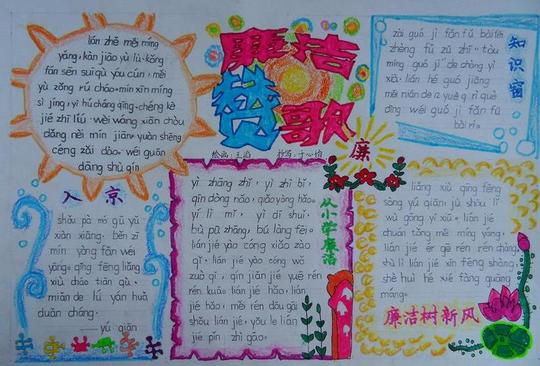 廉洁
赞歌
绘画:王滔 抄写:于心怡
lián zhě měi míng
yáng, kàn jiāo yù lù kǒng
fán sēn suì qù yóu cún, měi
yù zǒng rú cháo mín xīn míng
sì jìng, yī hú cháng qīng chéng kè
jié zhī liú wèi wàng xiān chòu
dǎng nèi mín jiān yuàn shēng
cēng zǎi dào wèi guān
dāng shù qīn
知识窗
zài guó jì fǎn fǔ bài fēn
zhèng fǔ zǔ zhī "tòu
míng guó jì" de chàng yì
xià lián hé guó jiāng
měi nián de 12 yuè 9 rì què
dìng wéi guó jì fǎn fǔ
bài rì.
入京
shǒu pà mó gū yǔ
xiàn xiāng, běn zī
mín yòng fǎn wéi
yāng. qīng fēng liǎng
xiù cháo tiān qù,
miǎn de lǘ yán huà
duǎn cháng.
——yú qiān
从小学廉洁
yì zhāng zhǐ, yì zhī bǐ,
qín dòng nǎo, qiǎo yòng hǎo.
yí lì mǐ, yì dī shuǐ,
bù pū zhāng, bú làng fèi.
lián jié yào cóng xiǎo zǎo
qǐ, lián jié yào cóng wǒ
zuò qǐ, qín jiǎn jié yuē rén
rén kuā. lián jié hǎo, lián
jié hǎo, měi rén dōu gāi
shǒu lián jié, yǒu le lián
jié pǐn zhì gāo.
廉
liǎng xiù qīng fēng
sòng yú qiān, jù shōu lǐ
wù gāng yì xuǎn. lián jié
chuán tǒng měi míng yáng,
lián jié ér gē rén rén chàng
shù lì lián jié xīn fēng shàng,
shè huì hé xié fàng guāng
máng.
廉洁树新风